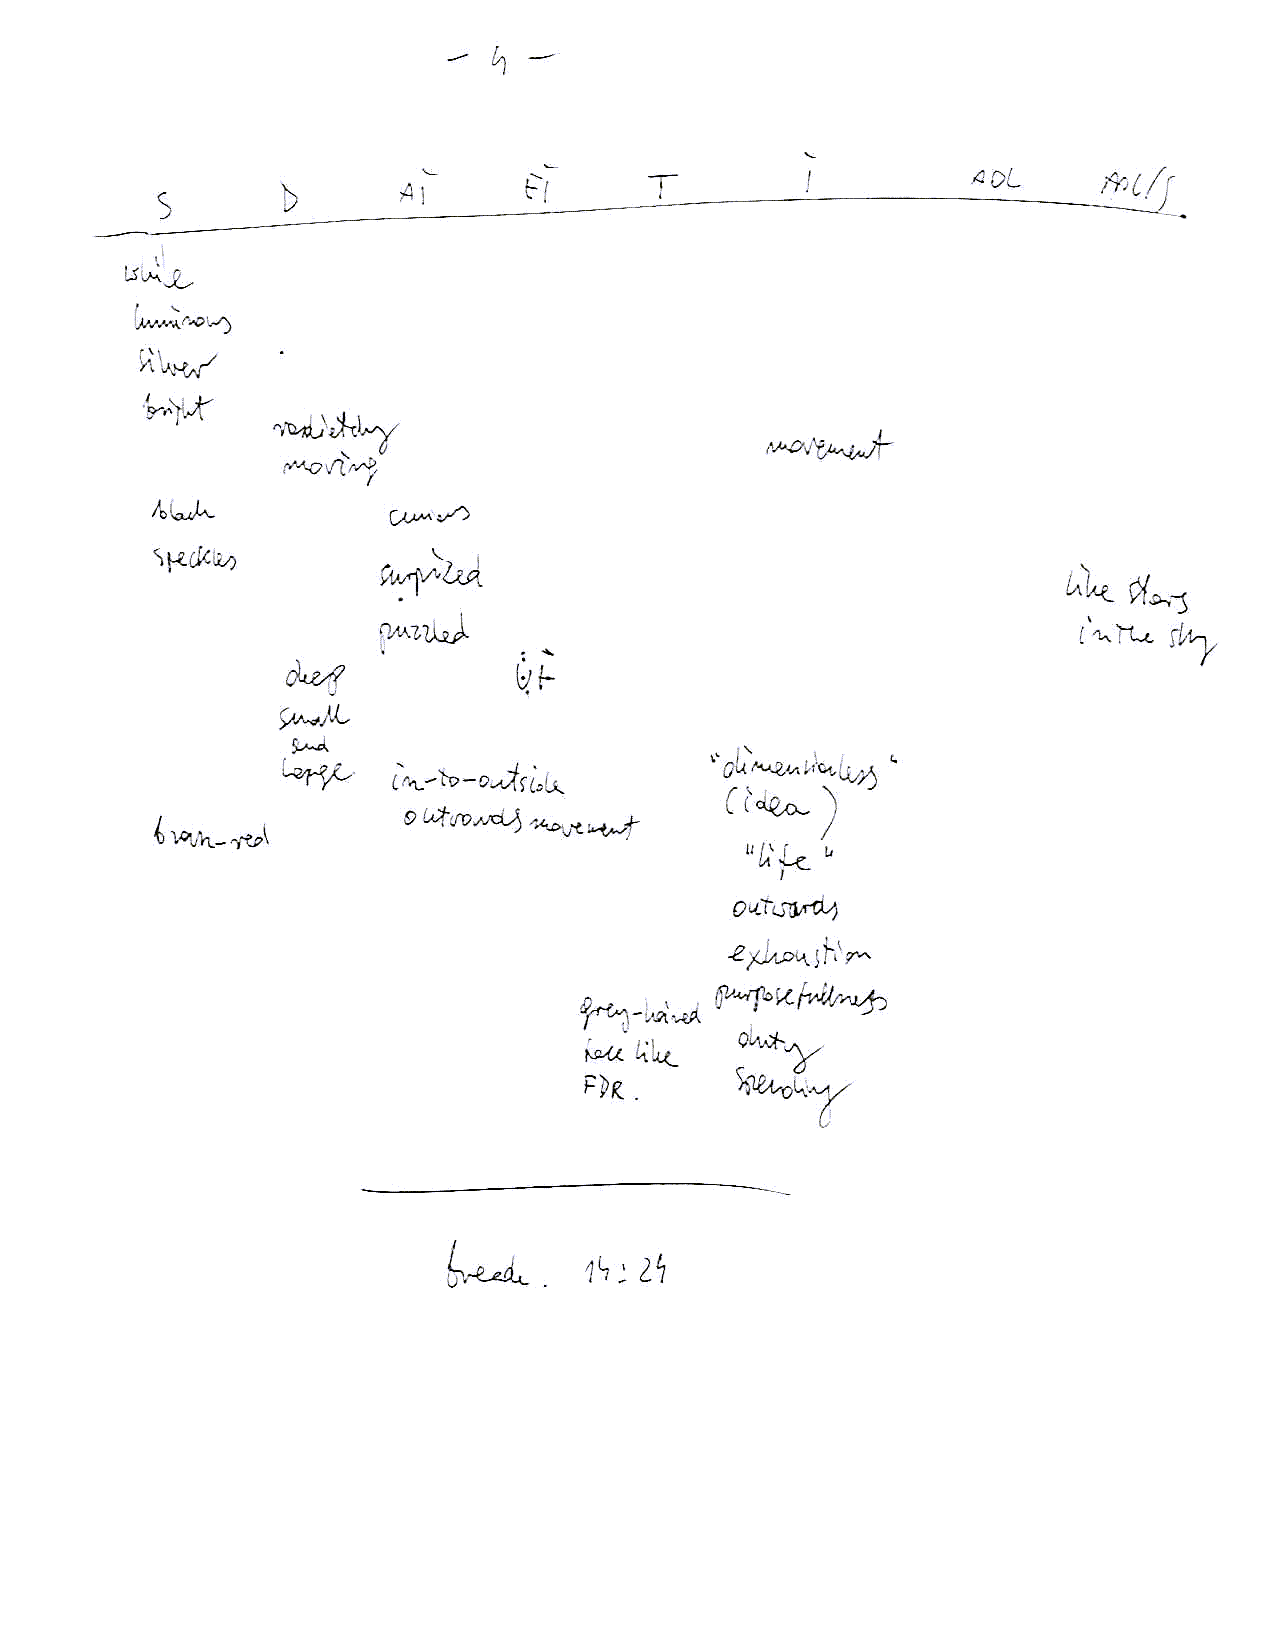 - 4 -
S D AI EI T I AOL AOL/S
white
luminous
silver
bright
radiating movement
moving
black curious
speckles
surprized like stars
puzzled in the sky
deep
small
and
large "dimensionless"
in-to-outside (idea)
outwards movement
brown-red "life"
outwards
exhaustion
purposefullness
grey-haired
face like duty
FDR. Spending
break. 14:24